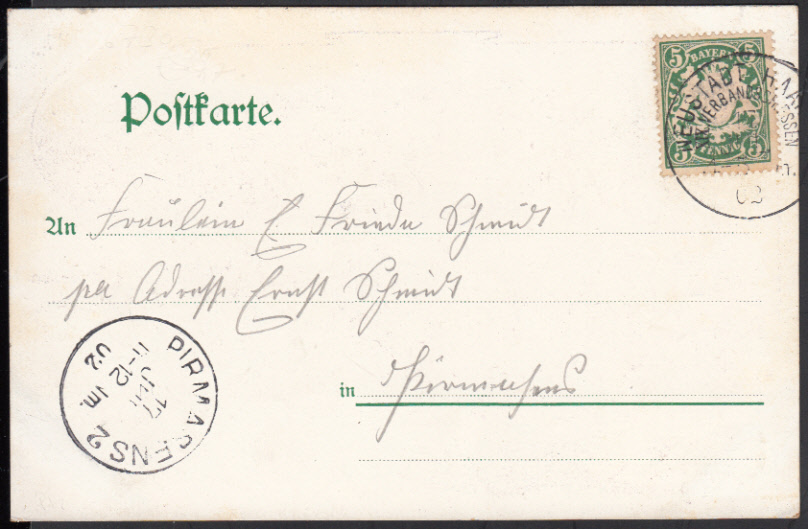 Postkarte.
5 BAYERN 5
5 PFENNIG 5
NEUSTADT HAA
XIX. VERBAND SSEN
02
An Fräulein E Friede Schmidt
per Adresse Ernst Schmidt
in Pirmasens
PIRMASENS 2
17 JUN
11-12 Vm.
02